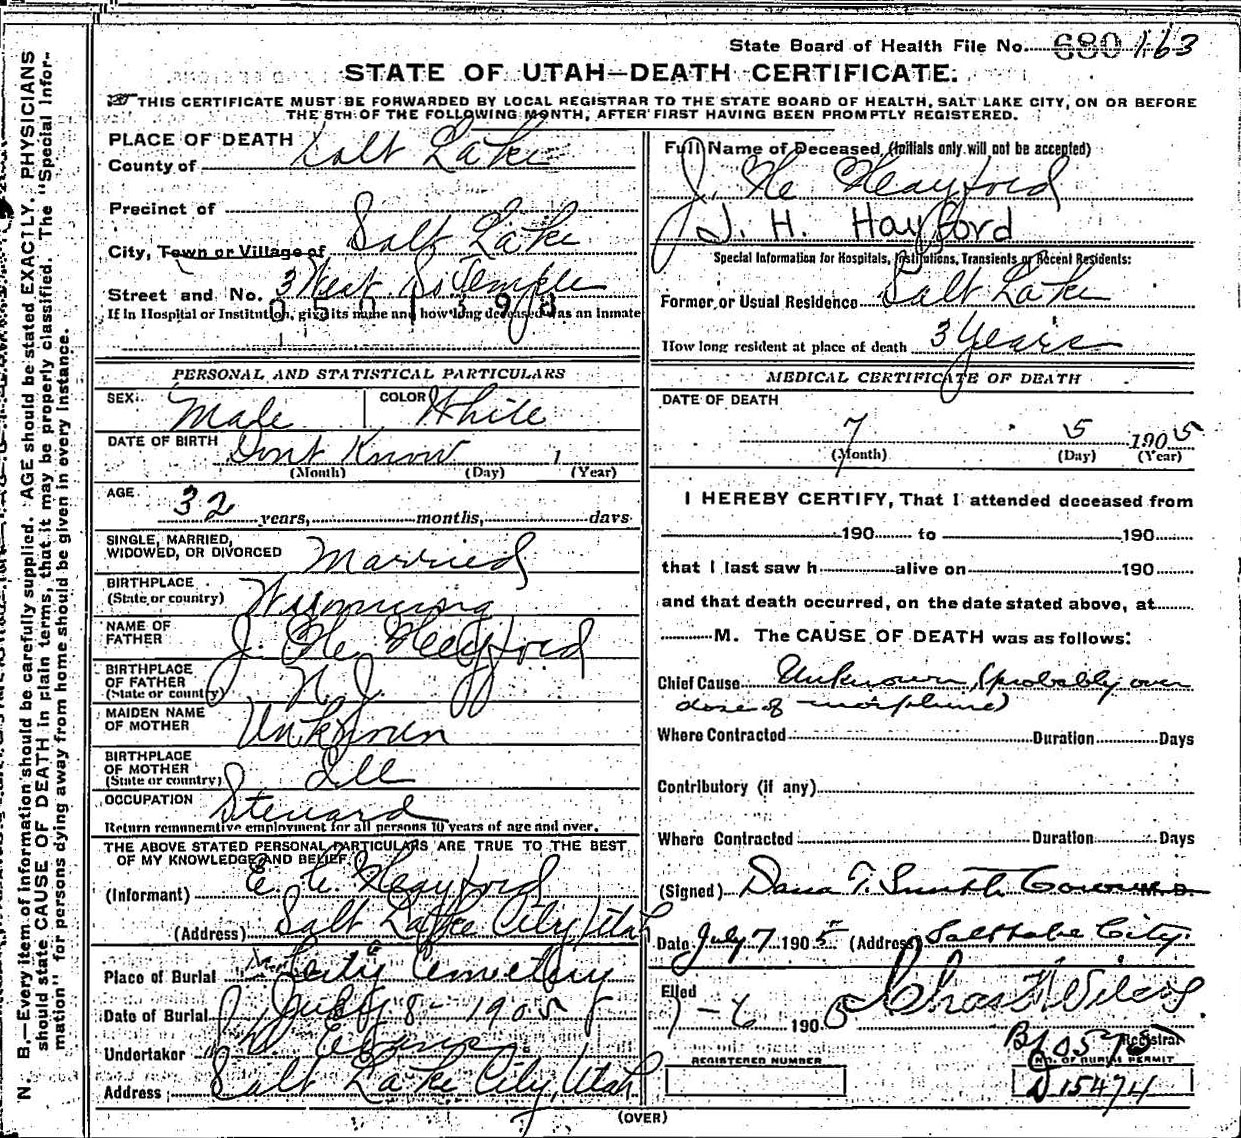 State Board of Health File No. 680 163
STATE OF UTAH—DEATH CERTIFICATE.
THIS CERTIFICATE MUST BE FORWARDED BY LOCAL REGISTRAR TO THE STATE BOARD OF HEALTH, SALT LAKE CITY, ON OR BEFORE
THE 5TH OF THE FOLLOWING MONTH, AFTER FIRST HAVING BEEN PROMPTLY REGISTERED.
PLACE OF DEATH
County of Salt Lake
Precinct of
City, Town or Village of Salt Lake
Street and No. 3 West So Temple
0501398
If in Hospital or Institution, give its name and how long deceased was an inmate
PERSONAL AND STATISTICAL PARTICULARS
SEX. Male COLOR White
DATE OF BIRTH Dont Know
(Month) (Day) (Year)
AGE. 32 years, months, days
SINGLE, MARRIED,
WIDOWED, OR DIVORCED Married
BIRTHPLACE
(State or country) Wyoming
NAME OF
FATHER J. H. Hayford
BIRTHPLACE
OF FATHER
(State or country) N.J.
MAIDEN NAME
OF MOTHER Unknown
BIRTHPLACE
OF MOTHER
(State or country) Ill
OCCUPATION Steward
Return remunerative employment for all persons 10 years of age and over.
THE ABOVE STATED PERSONAL PARTICULARS ARE TRUE TO THE BEST
OF MY KNOWLEDGE AND BELIEF
(Informant) E. C. Hayford
(Address) Salt Lake City, Utah
Place of Burial City Cemetery
Date of Burial July 8- 1905
Undertaker
Address Salt Lake City, Utah
Full Name of Deceased (Initials only will not be accepted)
J. H. Hayford
J. H. Hayford
Special Information for Hospitals, Institutions, Transients or Recent Residents:
Former or Usual Residence Salt Lake
How long resident at place of death 3 years
MEDICAL CERTIFICATE OF DEATH
DATE OF DEATH
7 5 1905
(Month) (Day) (Year)
I HEREBY CERTIFY, That I attended deceased from
190 to 190
that I last saw h alive on 190
and that death occurred, on the date stated above, at
M. The CAUSE OF DEATH was as follows:
Chief Cause Unknown, (probably over
dose of morphine)
Where Contracted Duration Days
Contributory (if any)
Where Contracted Duration Days
(Signed) Dana T. Smith Coroner M. D.
Date July 7 1905 (Address) Salt Lake City
Filed
7-6 1905
Registrar
REGISTERED NUMBER
NO. OF BURIAL PERMIT
D 15474
(OVER)
N. B.—Every item of information should be carefully supplied. AGE should be stated EXACTLY. PHYSICIANS
should state CAUSE OF DEATH in plain terms, that it may be properly classified. The "Special Infor-
mation" for persons dying away from home should be given in every instance.